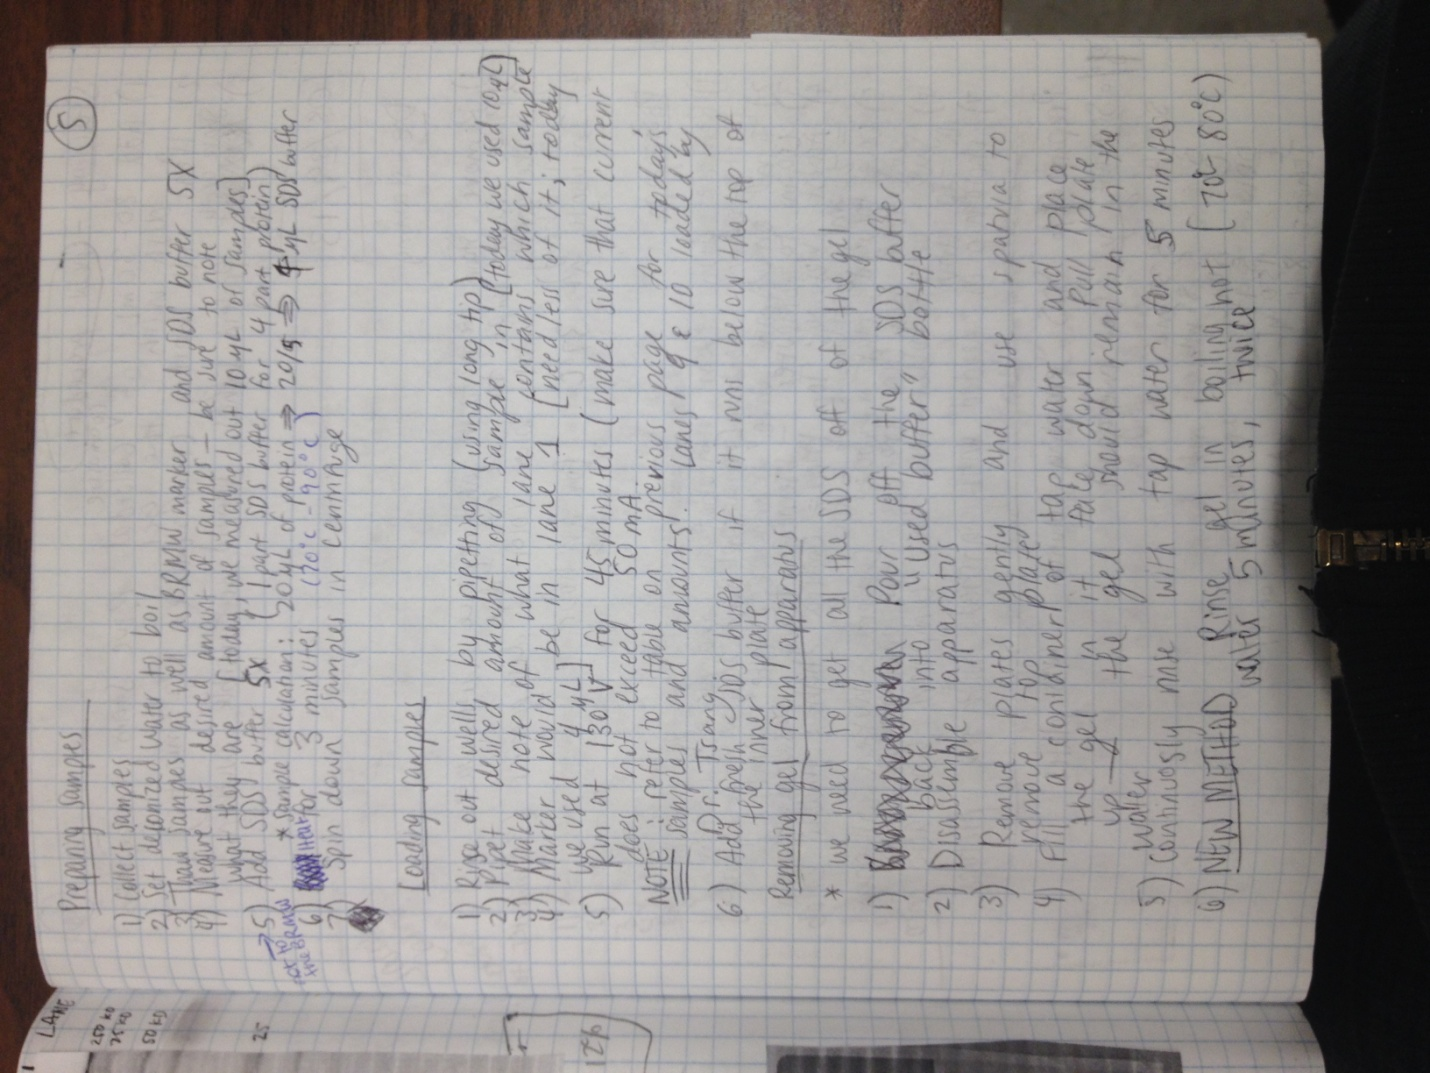 5
Preparing Samples
1) Collect samples
2) Set deionized water to boil
3) Thaw samples as well as BRMW marker and SDS buffer 5X
4) Measure out desired amount of samples - be sure to note
what they are [today, we measured out 10 µL of samples]
5) Add SDS buffer 5X (1 part SDS buffer for 4 part protein)
not to the BRMW
* Sample calculation: 20 µL of protein ⇒ 20/5 ⇒ 4 µL SDS buffer
6) Heat for 3 minutes (70°C - 90°C)
7) Spin down samples in centrifuge
Loading Samples
1) Rinse out wells by pipetting (using long tip)
2) Pipet desired amount of sample in [today we used 10 µL]
3) Make note of what lane contains which sample
4) Marker would be in lane 1 [need less of it; today
we used 4 µL]
5) Run at 130 V for 45 minutes (make sure that current
does not exceed 50 mA
NOTE: refer to table on previous page for today's
samples and amounts! Lanes 9 & 10 loaded by
Dr. Tsang.
6) Add fresh SDS buffer if it runs below the top of
the inner plate
Removing gel from apparatus
* we need to get all the SDS off of the gel
1) Pour off the SDS buffer
back into "used buffer" bottle
2) Disassemble apparatus
3) Remove plates gently and use spatula to
remove top plate
4) Fill a container of tap water and place
the gel in it face down. Pull plate
up - gel the gel should remain in the
water
5) Continuosly rinse with tap water for 5 minutes
6) NEW METHOD Rinse gel in boiling hot [70°- 80°C]
water 5 minutes, twice
LANE
250 KD
75 KD
50 KD
25